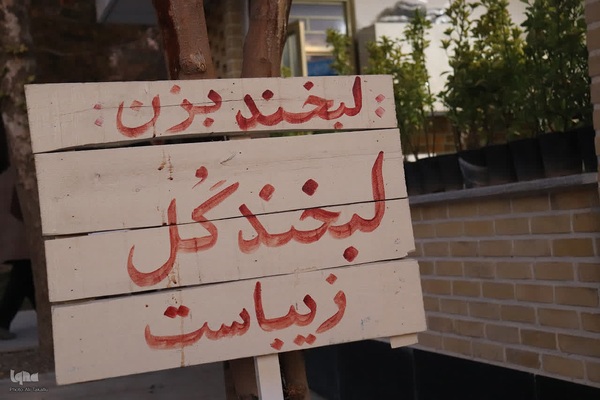 : لبخند بزن :
لبخند گُل
زیباست